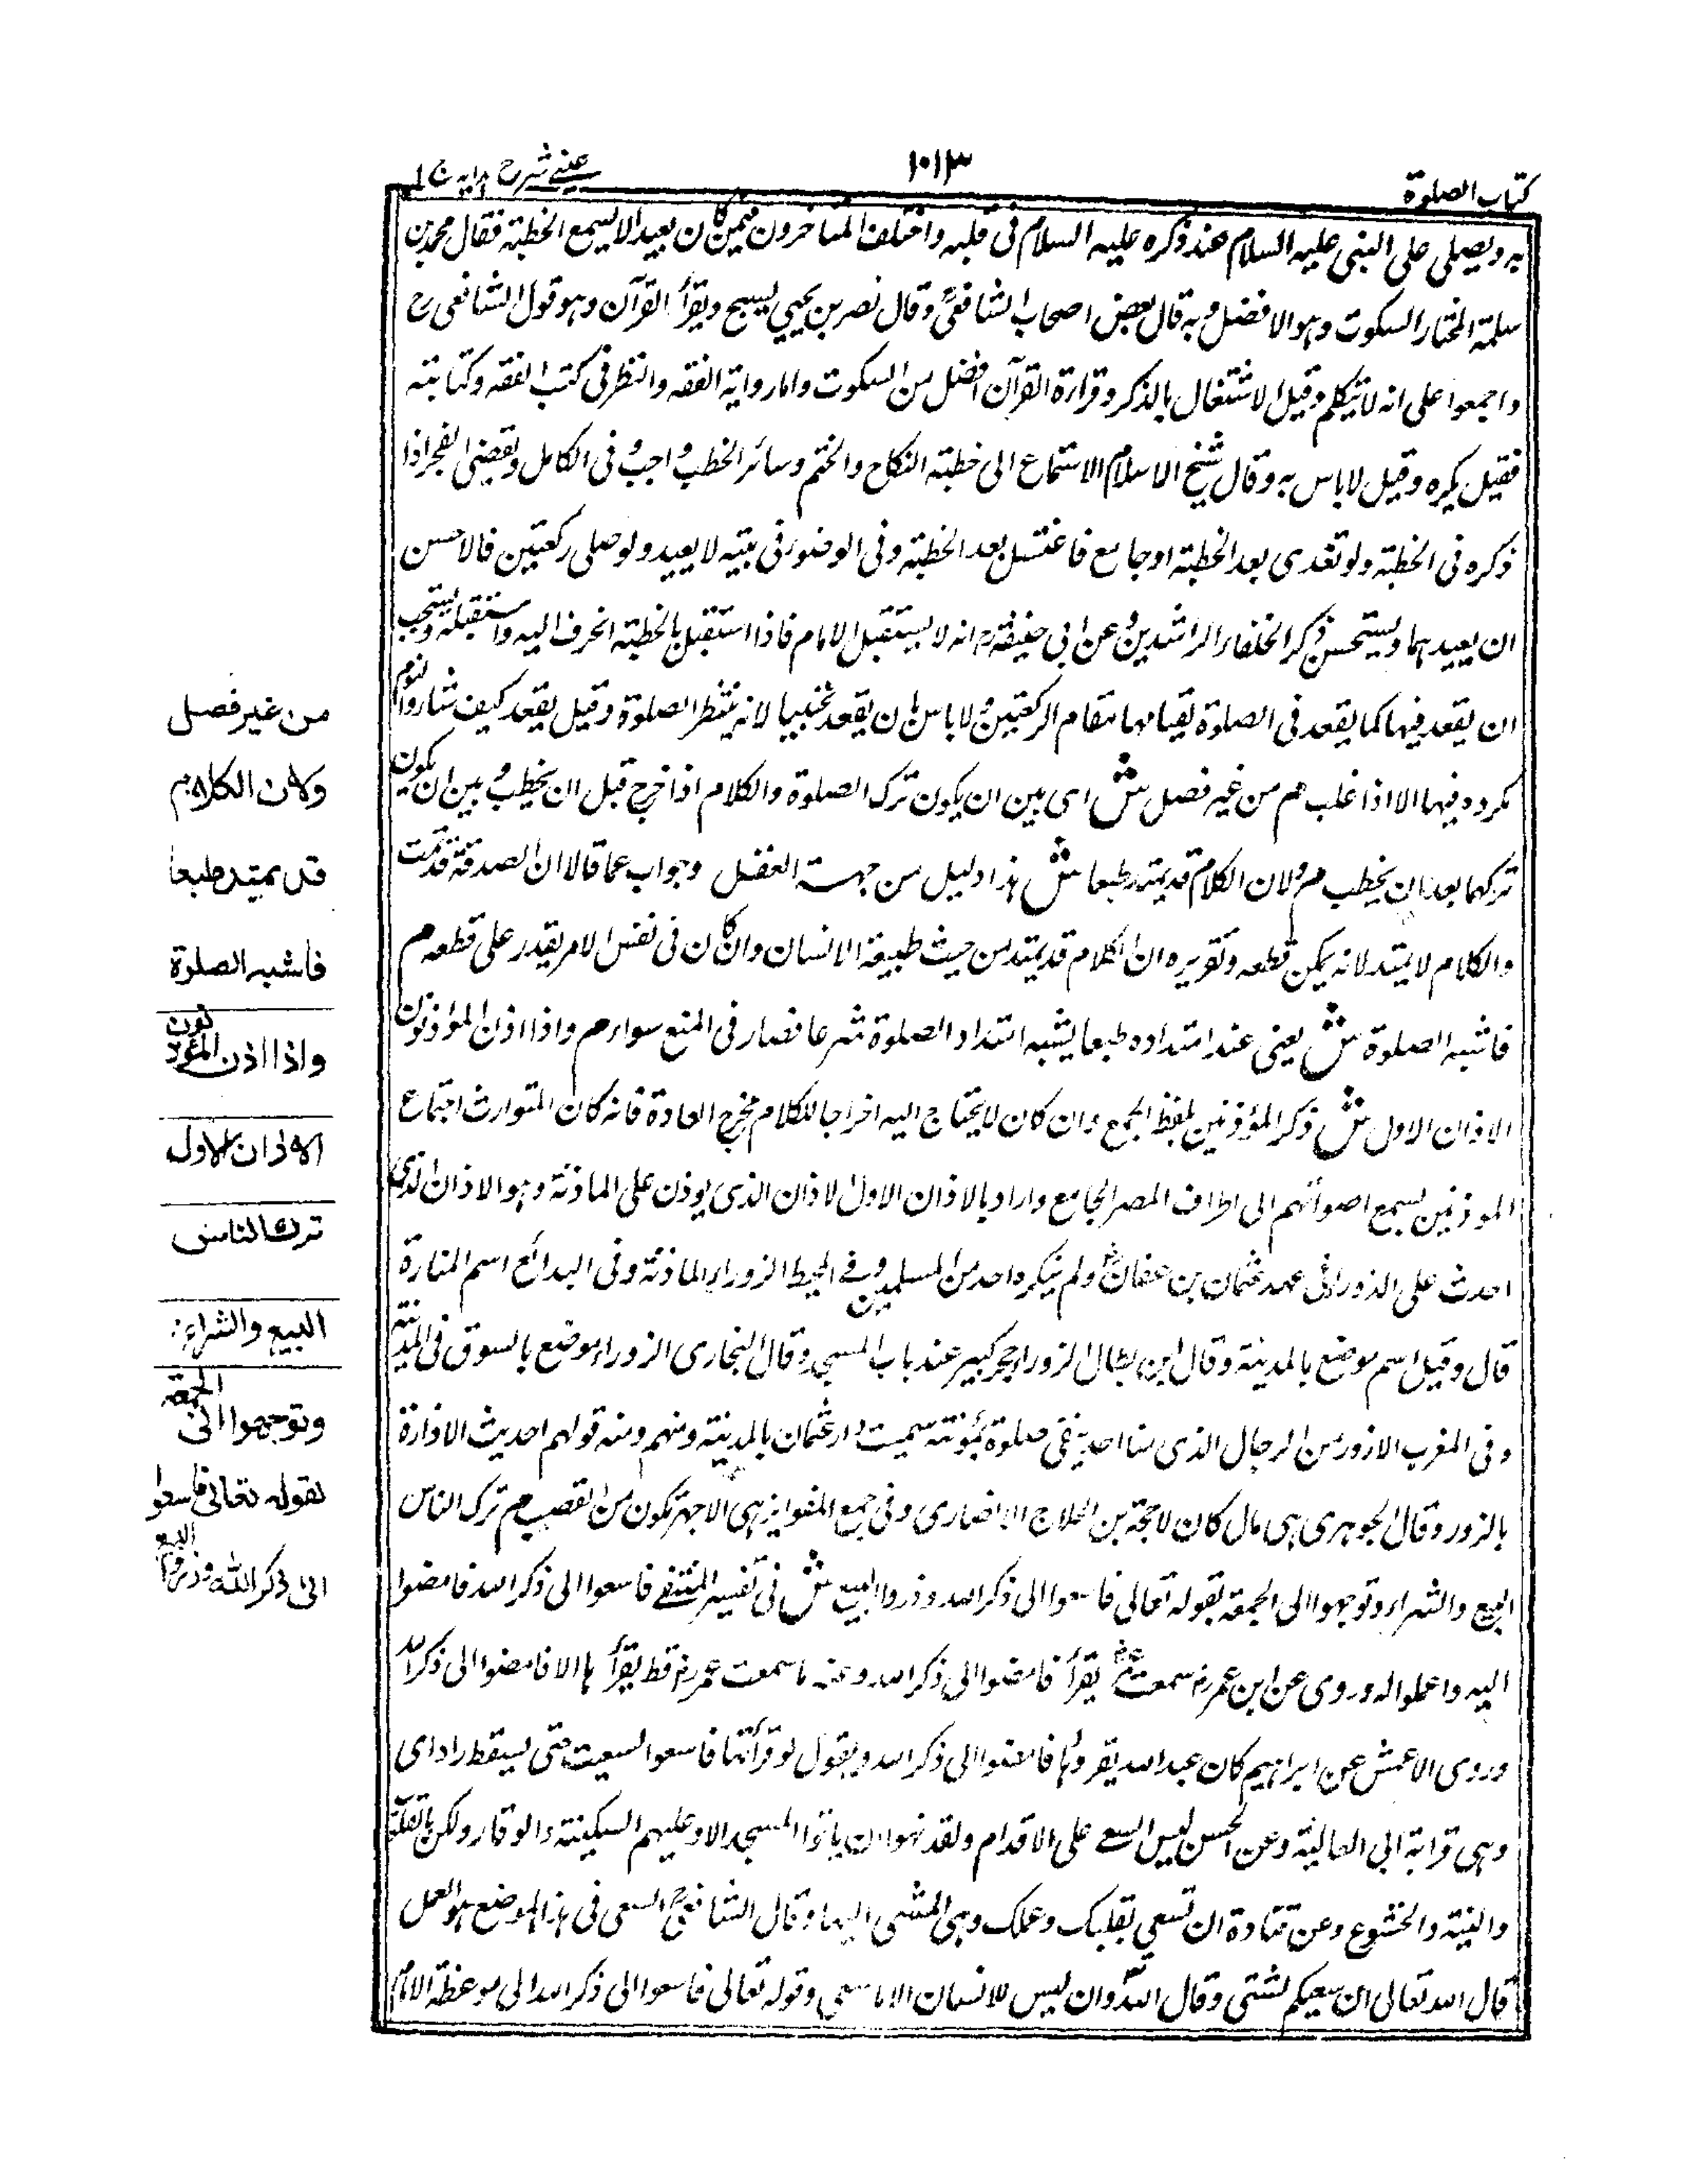 كتاب الصلوة
١٠١٣
عينى شرح هدايه ج ١
به ويصلى على النبى عليه السلام عند ذكره عليه السلام فى قلبه واختلف المتاخرون فيمن كان بعيدا لا يسمع الخطبة فقال محمد بن
سلمة المختار السكوت وهو الافضل وبه قال بعض اصحاب الشافعىؒ وقال نصر بن يحيي يسبح ويقرأ القرآن وهو قول الشافعى رح
واجمعوا على انه لا يتكلم وقيل الاشتغال بالذكر وقراءة القرآن افضل من السكوت واما رواية الفقه والنظر فى كتب الفقه وكتابته
فقيل يكره وقيل لا باس به وقال شيخ الاسلام الاستماع الى خطبة النكاح والختم وسائر الخطب واجب وفى الكامل ويقضى الفجر اذا
ذكره فى الخطبة ولو تغدى بعد الخطبة او جامع فاغتسل بعد الخطبة وفى الوضوء فى بيته لا يعيد ولو صلى ركعتين فالاحسن
ان يعيدهما ويستحسن ذكر الخلفاء الراشدين وعن ابى حنيفة رح انه لا يستقبل الامام فاذا استقبل بالخطبة انحرف اليه واستقبله ويستحب
ان يقعد فيها كما يقعد فى الصلوة لقيامها مقام الركعتين ولا باس بان يقعد محتبيا لانه ينتظر الصلوة وقيل يقعد كيف شاء والنوم
مكروه فيها الا اذا غلب م من غير فصل ش اى بين ان يكون ترك الصلوة والكلام اذا خرج قبل ان يخطب و بين ان يكون
تركهما بعد ان يخطب م ولان الكلام قد يمتد طبعا ش هذا دليل من جهة العقل وجواب عما قالا ان الصدقة قد تمت
والكلام لا يمتد لانه يمكن قطعه وتقريره ان الكلام قد يمتد من حيث طبيعة الانسان وان كان فى نفس الامر يقدر على قطعه م
فاشبه الصلوة ش يعنى عند امتداده طبعا يشبه امتداد الصلوة شرعا فصار فى المنع سواء م واذا اذن المؤذنون
الاذان الاول ش ذكر المؤذنين بلفظ الجمع وان كان لا يحتاج اليه اخراجا للكلام مخرج العادة فانه كان المتوارث اجتماع
الموذنين ليسمع اصواتهم الى اطراف المصر الجامع واراد بالاذان الاول الاذان الذى يوذن على الماذنة وهو الاذان الذى
احدث على الزوراء فى عهد عثمان بن عفانؓ ولم ينكره احد من المسلمين وفى المحيط الزوراء الماذنة وفى البدائع اسم المنارة
قال وقيل اسم موضع بالمدينة وقال ابن بطال الزوراء حجر كبير عند باب المسجد وقال البخارى الزوراء موضع بالسوق فى المدينة
وفى المغرب الازور من الرجال الذى مال احد شقى صدره وبمؤنثه سميت دار عثمان بالمدينة ومنه قولهم احدث الاذان
بالزوراء وقال الجوهرى هى مال كان لاحيحة بن الجلاح الانصارى وفى جمع م ترك الناس
البيع والشراء وتوجهوا الى الجمعة بقوله تعالى فاسعوا الى ذكر الله وذروا البيع ش فى تفسير فاسعوا الى ذكر الله فامضوا
اليه واعملوا له وروى عن ابن عمر رض سمعت عمر يقرأ فامضوا الى ذكر الله وعنه ما سمعت عمر رض قط يقرأ ها الا فامضوا الى ذكر الله
وروى الاعمش عن ابراهيم كان عبد الله يقرؤها فامضوا الى ذكر الله ويقول لو قرأتها فاسعوا لسعيت حتى يسقط ردائى
وهى قراءة ابى العالية وعن الحسن ليس السعى على الاقدام ولقد نهوا ان ياتوا المسجد الا وعليهم السكينة والوقار ولكن بالقلب
والنية والخشوع وعن قتادة ان تسعى بقلبك وعملك وهى المشى اليها وقال الشافعىؒ السعى فى هذا الموضع هو العمل
قال الله تعالى ان سعيكم لشتى وقال الله وان ليس للانسان الا ما سعى وقوله تعالى فاسعوا الى ذكر الله الى موعظة الامام
من غير فصل
ولان الكلام
قد يمتد طبعا
فاشبه الصلوة
واذا اذن المؤذنون
الاذان الاول
ترك الناس
البيع والشراء:
وتوجهوا الى الجمعة
لقوله تعالى فاسعوا
الى ذكر الله وذروا البيع